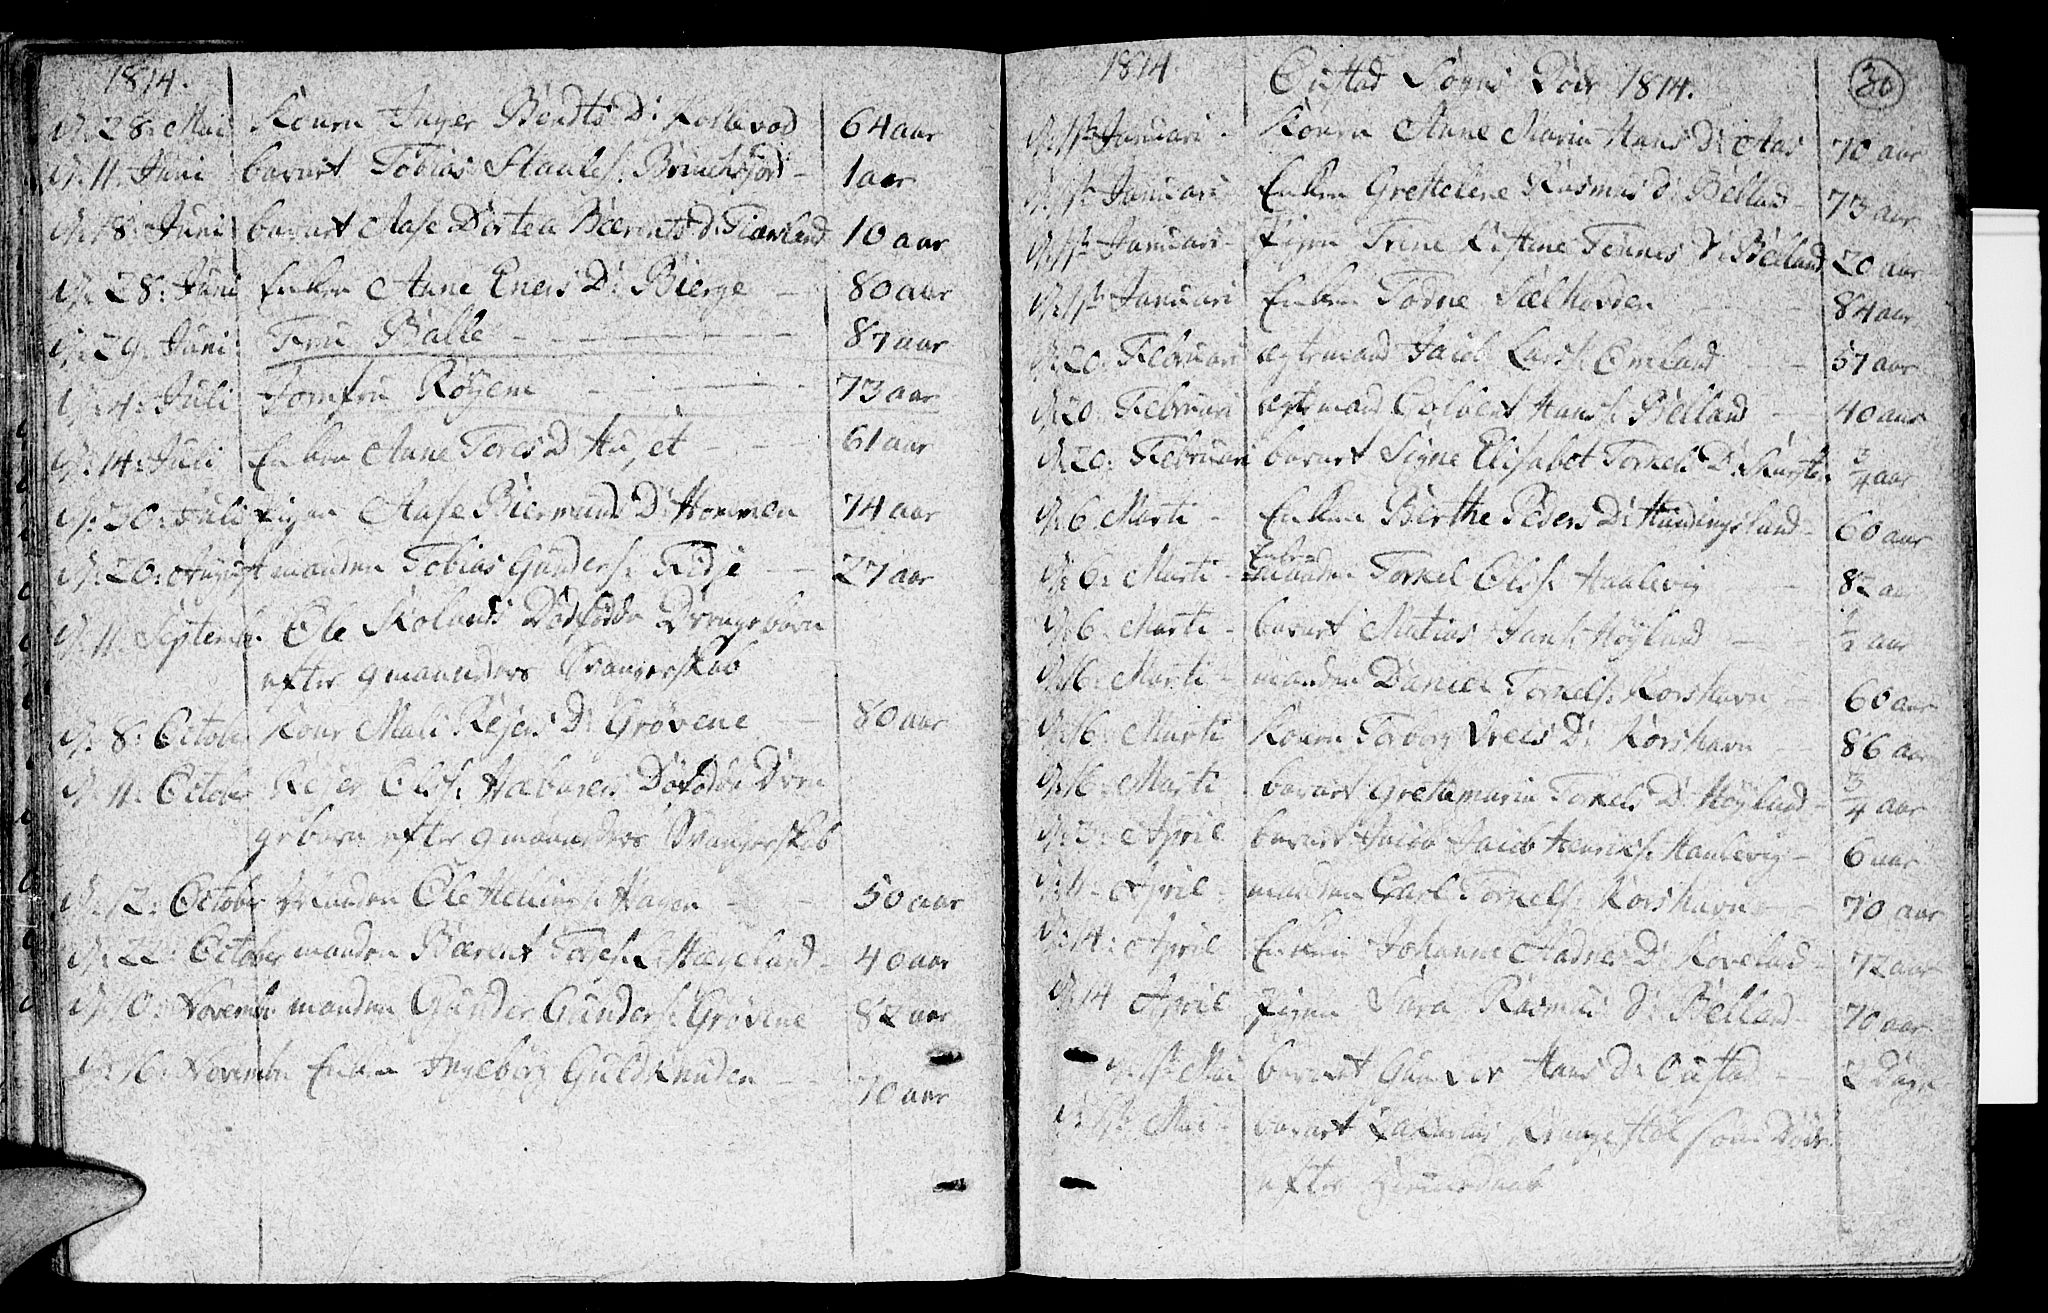 1814.
D: 28: Mai Konen Inger Berdts D: Kollevod 64 aar
D: 11: Juni barnet Tobias Staales: 1 aar
D: 18: Juni barnet Aase Dortea Bærents d: 10 aar
D: 28: Juni Enken Anne Eners D: Bierge 80 aar
D: 29: Juni Fru Balle 87 aar
D: 4: Juli Jomfru Röyem 73 aar
D: 14: Juli Enken Anne Tores D 61 aar
D: 30: Juli Pigen Aase Biermunds D: Hommen 74 aar
D: 20: August manden Tobias Gunders: Fidje 27 aar
D: 11 Septembr. Ole Dödfödde Drengebarn
efter 9 maaneders Svangerskab
D: 8: October Kone Mali Rejers D: Grövene 80 aar
D: 11: October Rejer Olos: Dödfödde Dren
gebarn efter 9 maaneders Svangerskab
D: 12: October Manden Ole 50 aar
D: 22: October manden Bærent Tores: Hægeland 40 aar
D: 10: Novembr manden Gunder Gunders: Grövene 82 aar
D: 16: Novembr Enken Ingeborg Guldsmeden 70 aar
1814
Öiestad Sogns Döde 1814.
30
D: 1ste Januari Konen Anne Maria Hans D: Aas 70 aar
D: 1ste Januari Enken Grethelene Rasmus d: Belland 73 aar
D: 1ste Januari Pigen Trine Kistine Tönnes D: Belland 20 aar
D: 1ste Januari Enken Todne Sælhorden 84 aar
D: 20: Februari egtemand Jacob Lars: 57 aar
D: 20: Februari egtemand Colben Hans: Belland 40 aar
D: 20: Februari barnet Signe Elisabet Torkels D: 3/4 aar
D: 6 Marti Enken Birthe Peders D: Hundingsland 60 aar
D: 6: Marti Enkemanden Torkel Olos: Haalevig 82 aar
D: 6: Marti barnet Matias Höyland 1/2 aar
D: 16: Marti manden Daniel Torkels: Korshavn 60 aar
D: 16: Marti Konen Torborg D: Korshavn 86 aar
D: 16: Marti barnet Grethemarin Torkels D: Höyland 3/4 aar
D: 3: April barnet Jacob Jacob Henriks: Haalevig 6 aar
D: 11 April manden Carl Torkels: Korshavn 70 aar
D: 14: April Enken Johanne Aadnes D: Roveland 72 aar
D: 14 April Pigen Sara Rasmus D: Belland 70 aar
D: 1ste Mai barnet Gunder Hans D: Öiestad 2 Dage
D: 1ste Mai barnet som Döde
efter Hiemmedaab